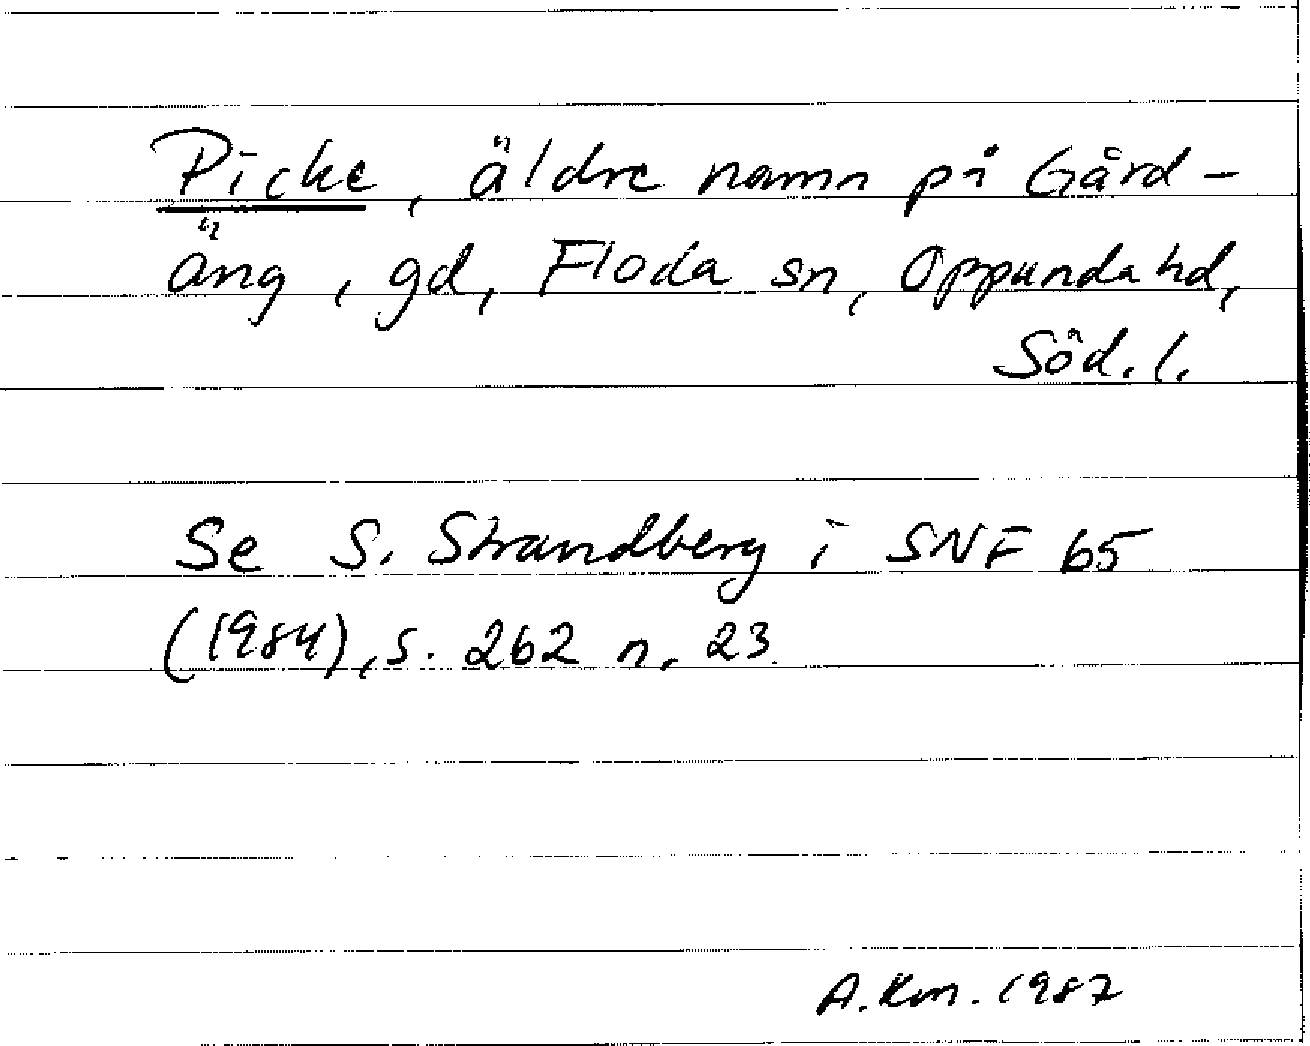 Picke, äldre namn på Gård-
äng, gd, Floda sn, Oppunda hd,
Söd. l.
Se S. Strandberg i SNF 65
(1984), s. 262 n. 23.
A. Km. 1987